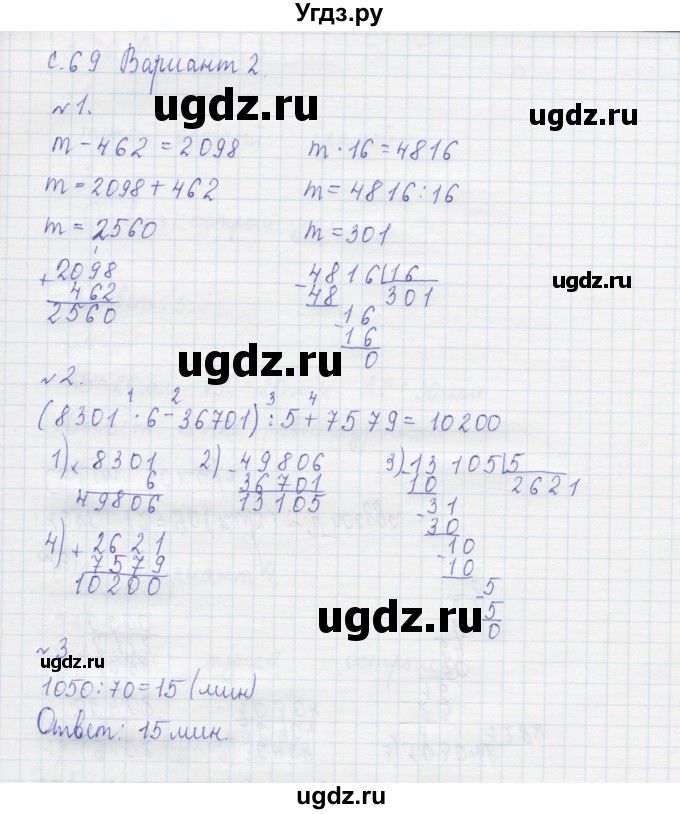 Угдз.ру
с.69 Вариант 2.
ugdz.ru ugdz.ru
№1.
m - 462 = 2098 m · 16 = 4816
m = 2098 + 462 m = 4816 : 16
m = 2560 m = 301
1
+ 2098 - 4816 | 16
462 48 301
2560 - 16
16
0
ugdz.ru
ugdz.ru
№2.
1 2 3 4
(8301 · 6 - 36701) : 5 + 7579 = 10200
1) × 8301 2) - 49806 3) - 13105 | 5
6 36701 10 2621
49806 13105 - 31
30
4) + 2621 - 10
7579 10
10200 - 5
5
0
ugdz.ru
ugdz.ru
№3
1050 : 70 = 15 (мин)
Ответ: 15 мин.
ugdz.ru